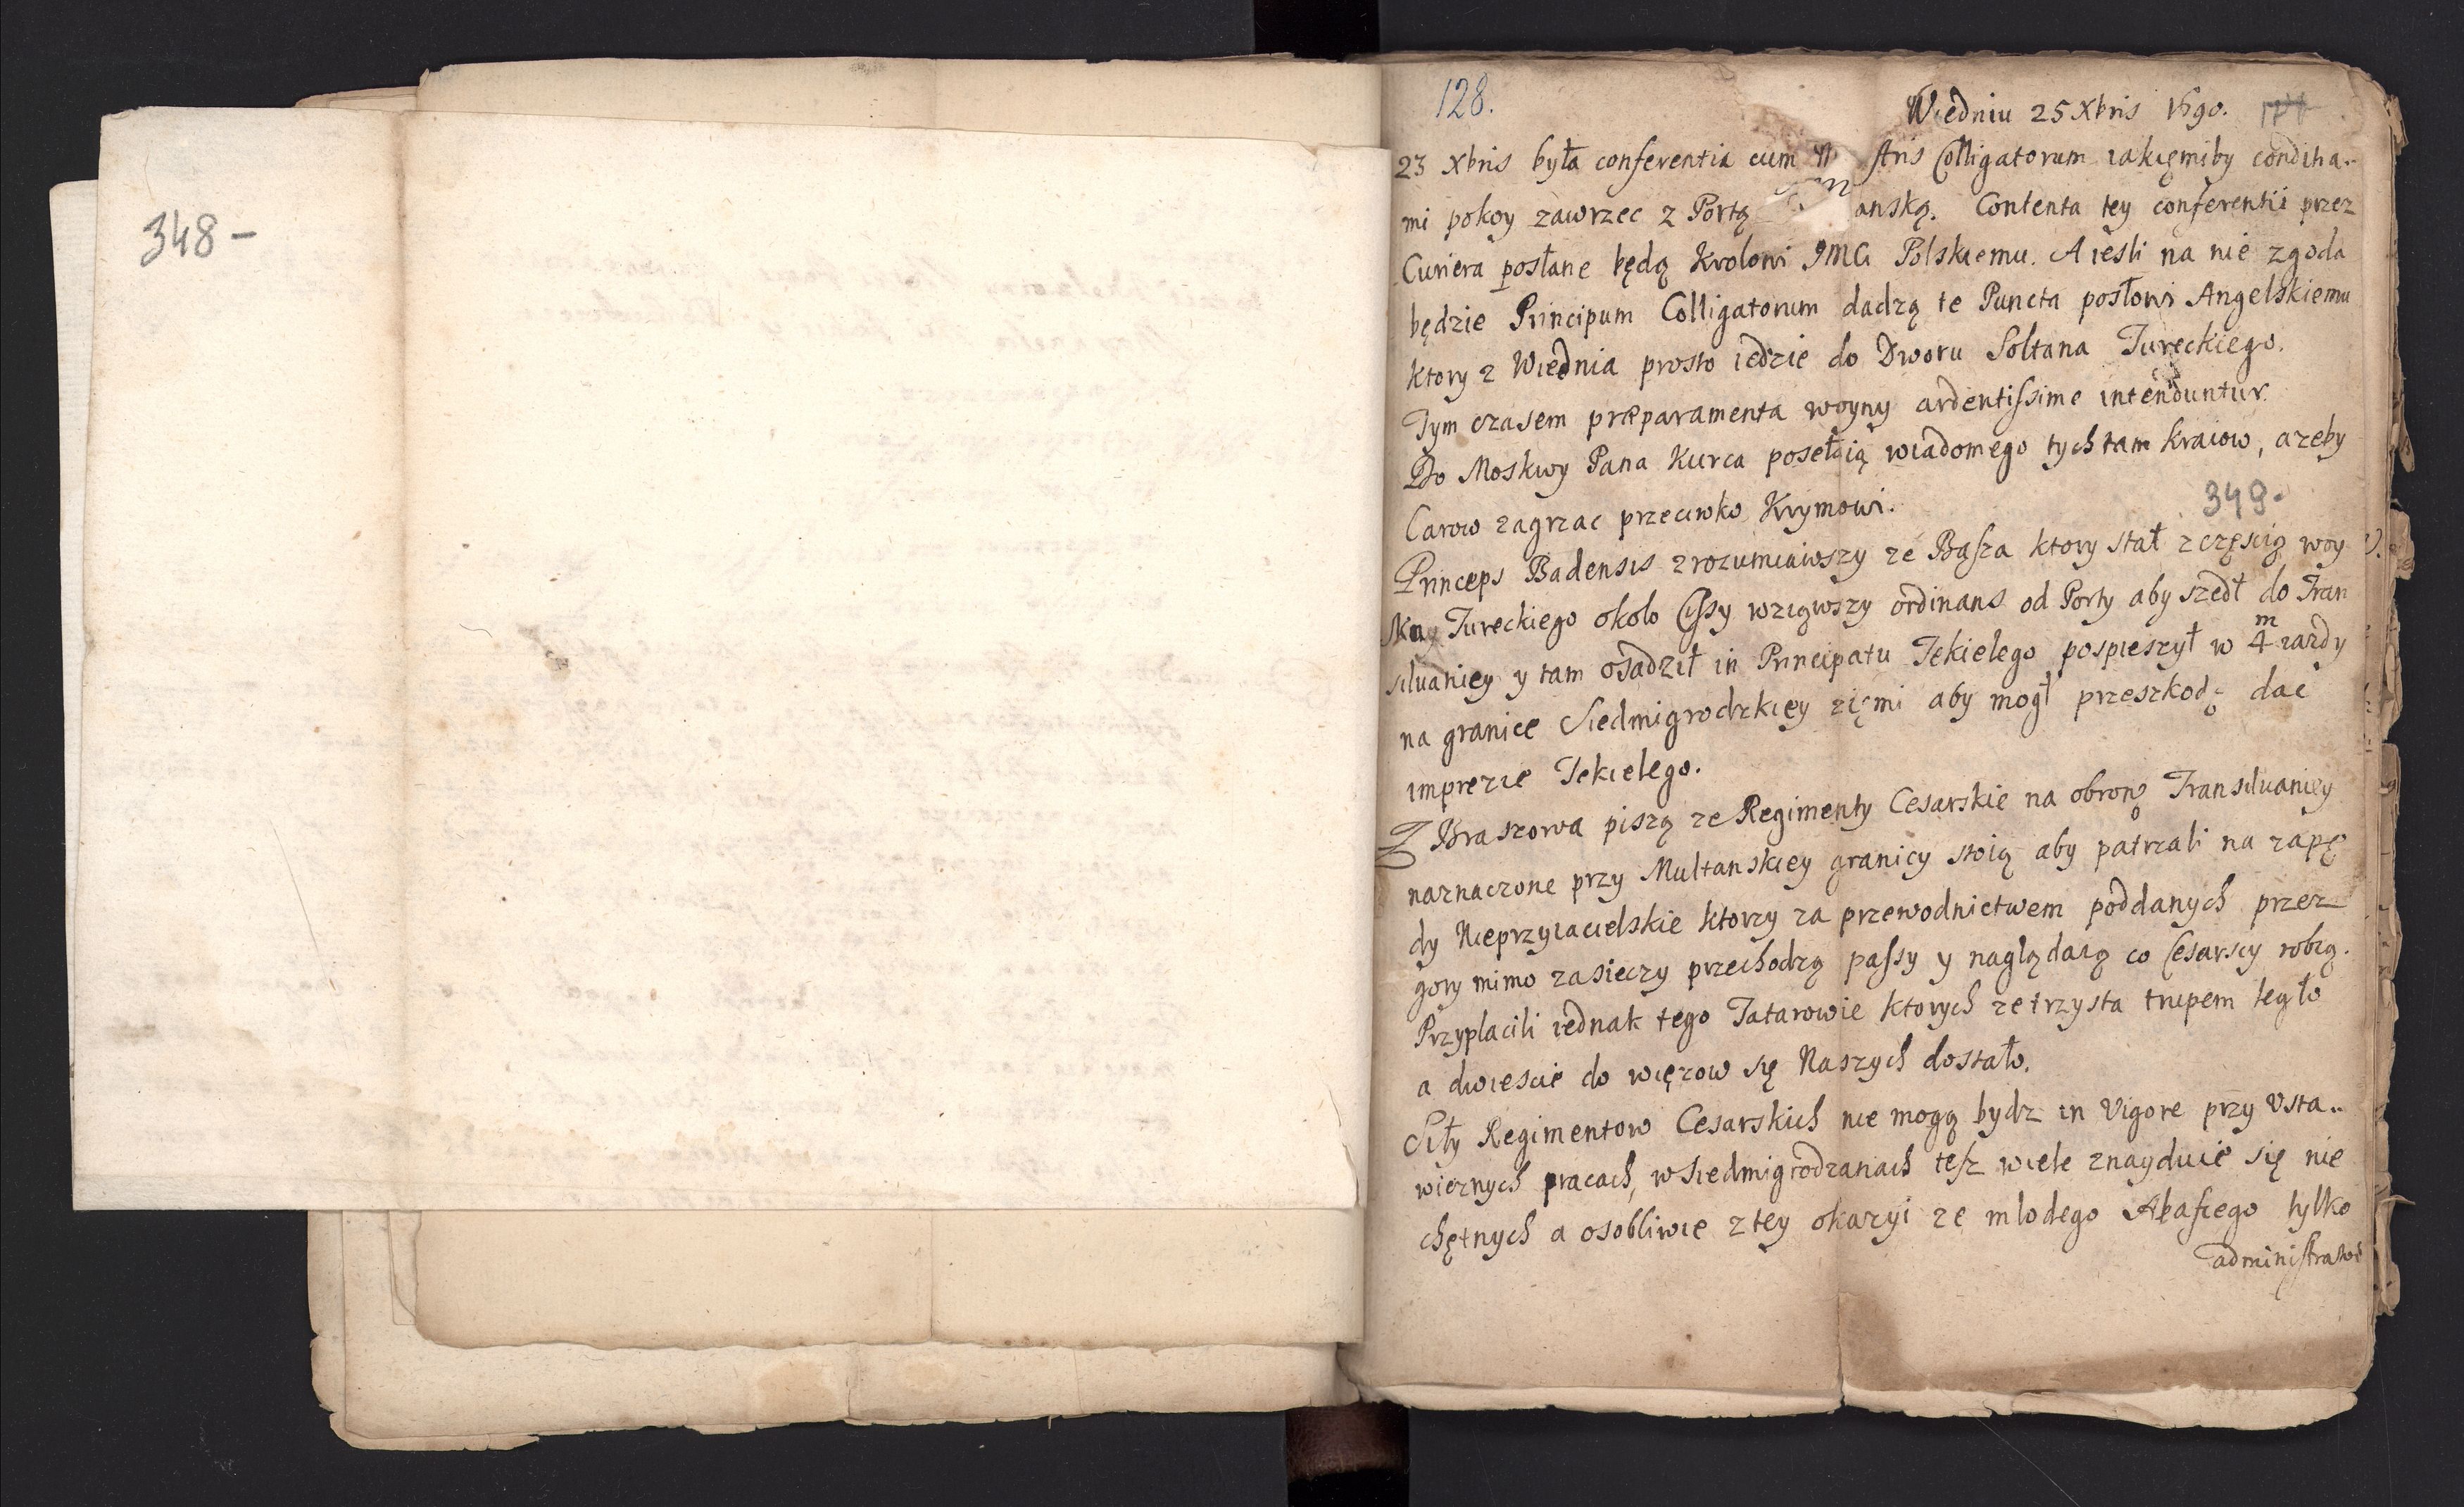 348-
128.
Wiedniu 25 Xbris 1690.
23 Xbris była conferentia cum stris Colligatorum iakięmiby conditia..
mi pokoy zawrzec z Portą anską. Contenta tey conferentii przez
Curiera posłane będą Krolowi JMCi Polskiemu. A iesli na nie zgoda
będzie Principum Colligatorum dadzą te Puncta posłowi Angelskiemu
ktory z Wiednia prosto iedzie do Dworu Soltana Tureckiego.
Tym czasem præparamenta woyny ardentissime intenduntur.
Do Moskwy Pana Kurca posełaią wiadomego tych tam kraiow, azeby
Carow zagrzac przeciwko Krymowi.
349.
Princeps Badensis zrozumiawszy ze Basza ktory stał z częscią woy
ska Tureckiego okolo Cissy wziąwszy ordinans od Porty aby szedł do Tran
siluaniey y tam osadził in Principatu Tekielego pospieszył w 4 m iazdy
na granice Siedmigrodzkiey ziemi aby mogł przeszkodę dac
imprezie Tekielego.
Z Braszowa piszą ze Regimenty Cesarskie na obronę Transiluaniey
naznaczone przy Multanskiey granicy stoią aby patrzali na zapę
dy Nieprzyiacielskie ktorzy za przewodnictwem poddanych przez
gory mimo zasieczy przechodzą passy y naglądaią co Cesarscy robią.
Przyplacili iednak tego Tatarowie ktorych ze trzysta trupem legło
a dwiescie do więzow się Naszych dostało.
Siły Regimentow Cesarskich nie mogą bydz in Vigore przy Vsta..
wicznych pracach, w Siedmigrodzanach tesz wiele znayduie się nie
chętnych a osobliwie z tey okazyi ze mlodego Abafiego tylko
administrato